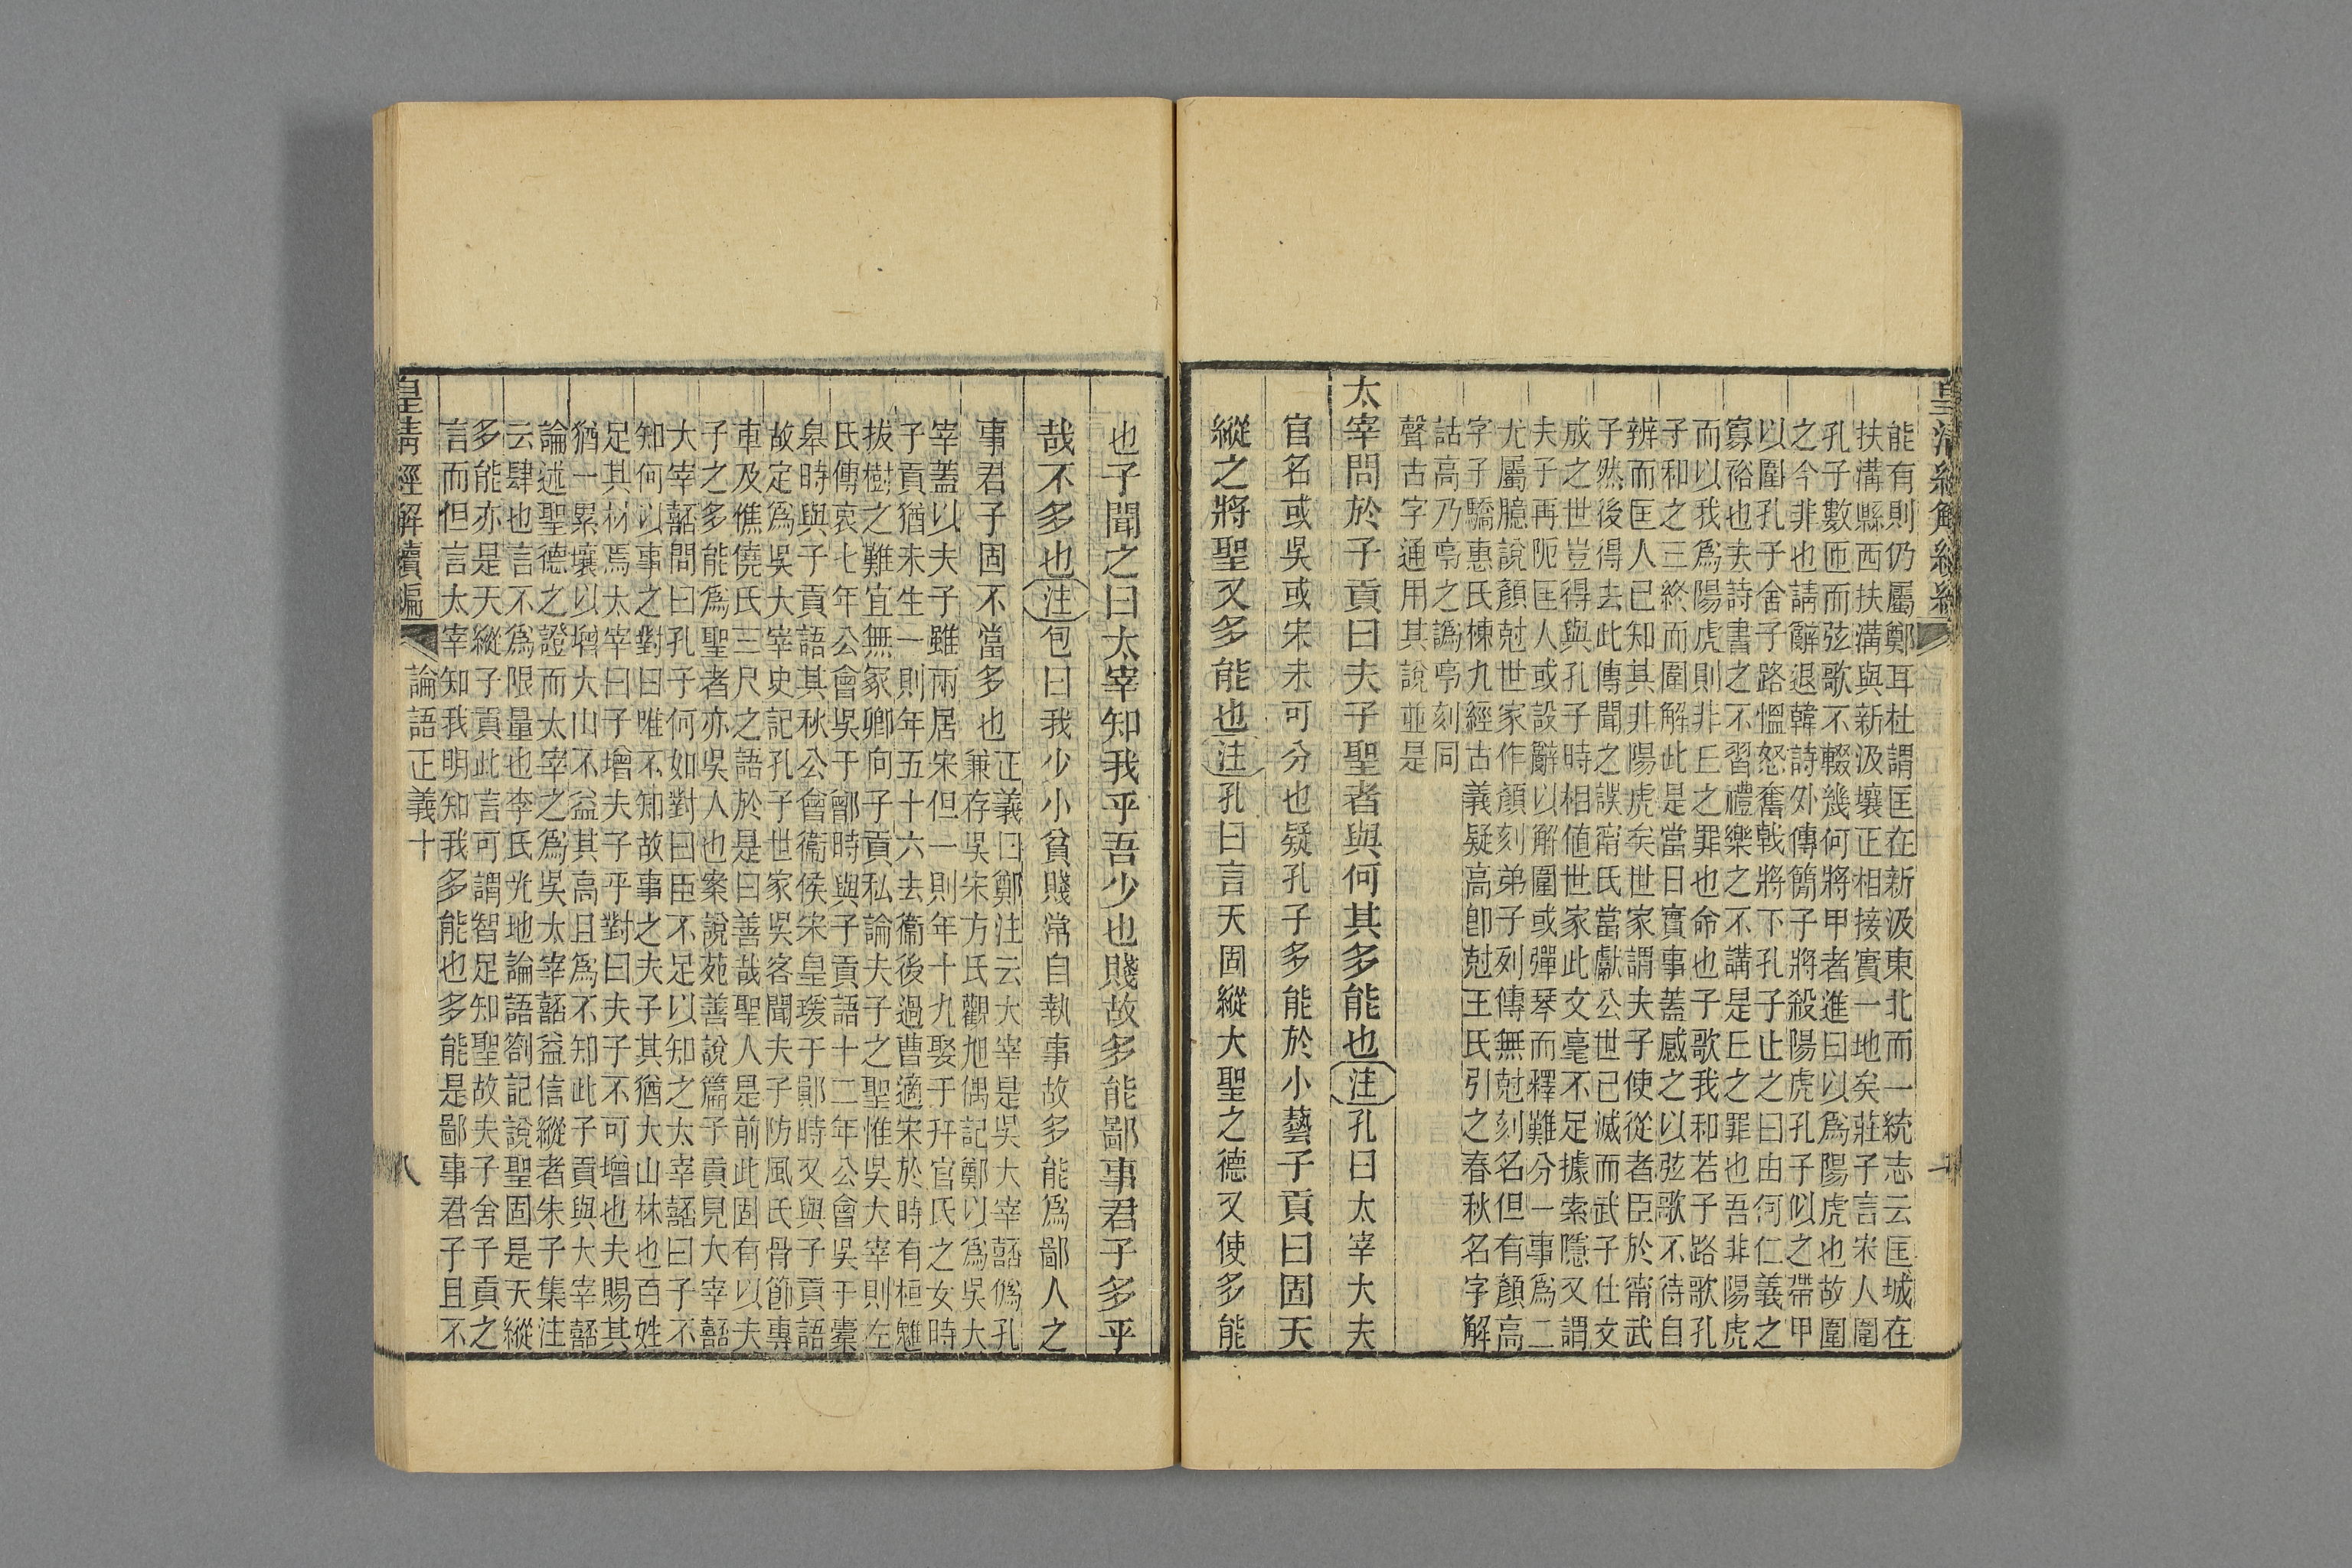 能有則仍屬鄭耳杜謂匡在新汲東北而一統志云匡城在
扶溝縣西扶溝與新汲壤正相接實一地矣莊子言宋人圍
孔子數匝而弦歌不輟幾何將甲者進曰以爲陽虎也故圍
之今非也請辭退韓詩外傳簡子將殺陽虎孔子似之帶甲
以圍孔子舍子路慍怒奮戟將下孔子止之曰由何仁義之
寡裕也夫詩書之不習禮樂之不講是丘之罪也吾非陽虎
而以我爲陽虎則非丘之罪也命也子歌我和若子路歌孔
子和之三終而圍解此是當日實事蓋感之以弦歌不待自
辨而匡人已知其非陽虎矣世家謂夫子使從者臣於甯武
子然後得去此傳聞之誤甯氏當獻公世已滅而武子仕文
成之世豈得與孔子時相值世家此文毫不足據索隱又謂
夫子再阨匡人或設辭以解圍或彈琴而釋難分一事爲二
尤屬臆說顏尅世家作顏刻弟子列傳無尅刻名但有顏高
字子驕惠氏棟九經古義疑高卽尅王氏引之春秋名字解
詁高乃亭之譌亭刻同
聲古字通用其說並是
太宰問於子貢曰夫子聖者與何其多能也注孔曰太宰大夫
官名或吳或宋未可分也疑孔子多能於小藝子貢曰固天
縱之將聖又多能也注孔曰言天固縱大聖之德又使多能
也子聞之曰太宰知我乎吾少也賤故多能鄙事君子多乎
哉不多也注包曰我少小貧賤常自執事故多能爲鄙人之
事君子固不當多也
正義曰鄭注云大宰是吳大宰嚭僞孔
兼存吳宋方氏觀旭偶記鄭以爲吳大
宰蓋以夫子雖兩居宋但一則年十九娶于幵官氏之女時
子貢猶未生一則年五十六去衞後過曹適宋於時有桓魋
拔樹之難宜無冢卿向子貢私論夫子之聖惟吳大宰則左
氏傳哀七年公會吳于鄫時與子貢語十二年公會吳于橐
皋時與子貢語其秋公會衞侯宋皇瑗于鄖時又與子貢語
故定爲吳大宰史記孔子世家吳客聞夫子防風氏骨節專
車及僬僥氏三尺之語於是曰善哉聖人是前此固有以夫
子之多能爲聖者亦吳人也案說苑善說篇子貢見大宰嚭
大宰嚭問曰孔子何如對曰臣不足以知之太宰嚭曰子不
知何以事之對曰唯不知故事之夫子其猶大山林也百姓
足其材焉太宰曰子增夫子乎對曰夫子不可增也夫賜其
猶一累壤以增大山不益其高且爲不知此子貢與大宰嚭
論述聖德之證而太宰之爲吳太宰嚭益信縱者朱子集注
云肆也言不爲限量也李氏光地論語劄記說聖固是天縱
多能亦是天縱子貢此言可謂智足知聖故夫子舍子貢之
言而但言太宰知我明知我多能也多能是鄙事君子且不
皇清經解續編
論語正義十
八